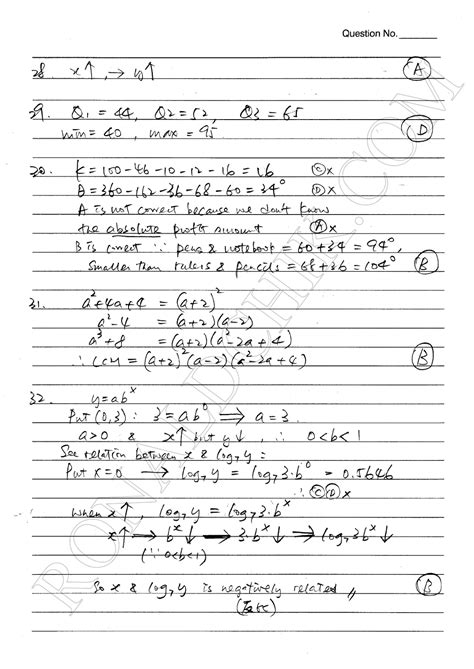 Question No.
28. x↑, → y↑ (A)
29. Q1 = 44, Q2 = 52, Q3 = 65
min = 40, max = 95 (D)
30. k = 100-46-10-12-16 = 16 (C)x
θ = 360-162-36-68-60 = 34° (D)x
A is not correct because we don't know
the absolute profit amount (A)x
B is correct ∵ pens & notebook = 60+34 = 94°,
smaller than rulers & pencils = 68+36 = 104° (B)
31. a²+4a+4 = (a+2)²
a²-4 = (a+2)(a-2)
a³+8 = (a+2)(a²-2a+4)
∴ LCM = (a+2)²(a-2)(a²-2a+4) (B)
32. y=ab^x
Put (0,3): 3=ab⁰ ⟹ a=3
a>0 & x↑ but y↓, ∴ 0<b<1
See relation between x & log₇y:
Put x=0 → log₇y = log₇3·b⁰ = 0.5646
∴ (C)(D)x
When x↑, log₇y = log₇3·b^x
x↑ → b^x↓ → 3·b^x↓ → log₇3b^x↓
(∵ 0<b<1)
So x & log₇y is negatively related (B)
RONALDCHIK.COM